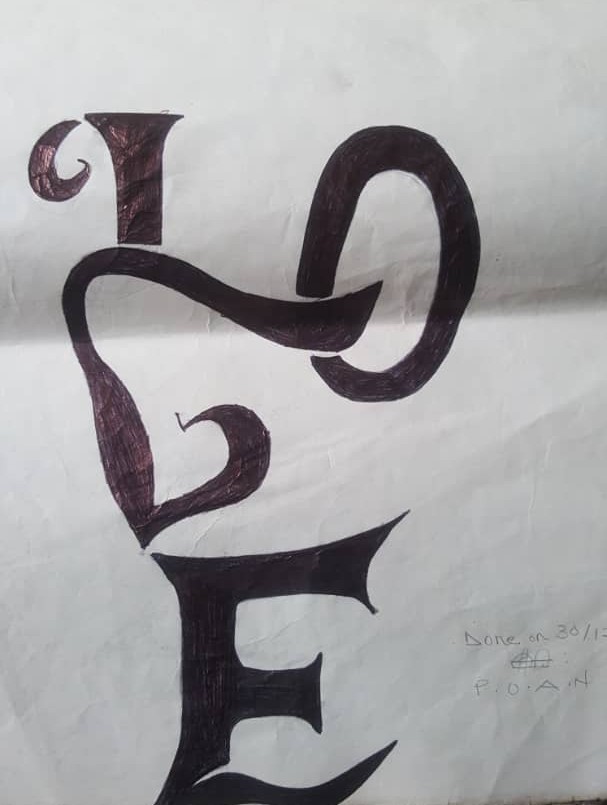 LOVE
Done on 30/1
P.O.A.N